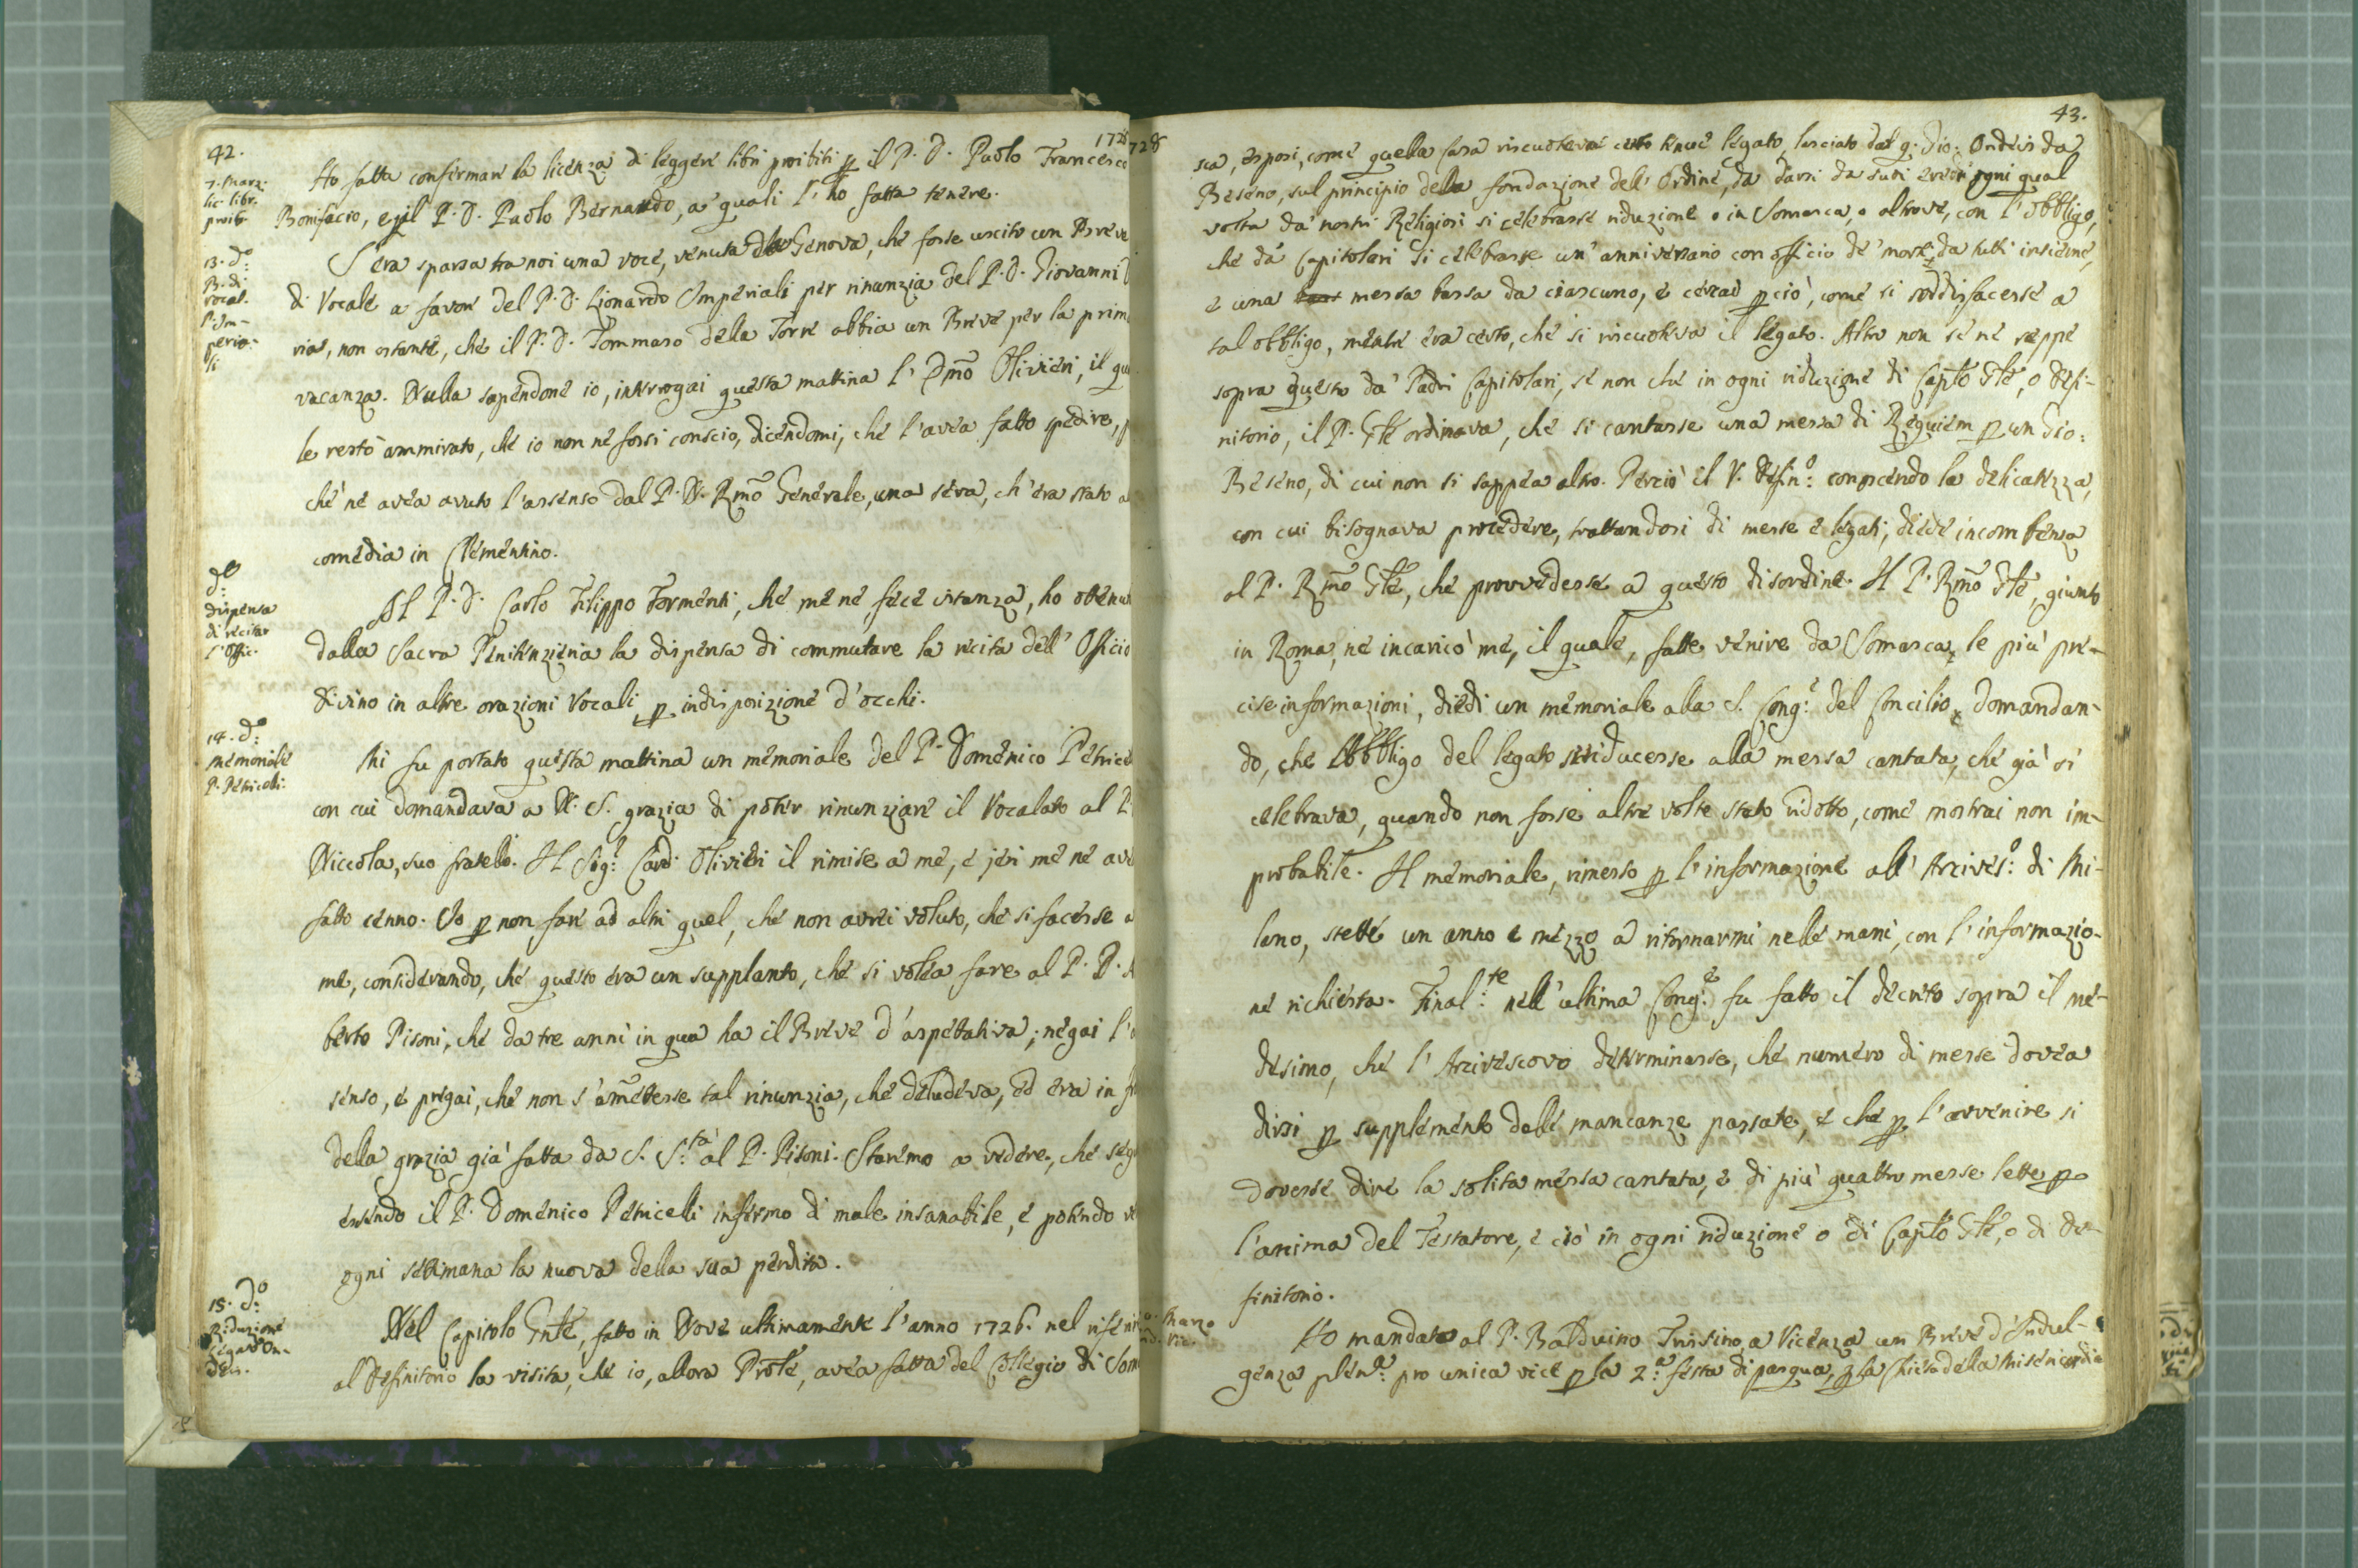 42.
1728
7. Marz:
lic. libr.
proib.
Ho fatta confirmare la licenza di leggere libri proibiti p il P. D. Paolo Francesco
Bonifacio, e p il P. D. Paolo Bernardo, a' quali l'ho fatta tenere.
13. do:
B. di
vocal.
l'Im-
peria-
li
S'era sparsa tra noi una voce, venuta da Genova, che fosse uscito un Breve
di Vocale a favore del P. D. Lionardo Imperiali per rinunzia del P. D. Giovanni
ria, non ostante, che il P. D. Tommaso della Torre abbia un Breve per la prima
vacanza. Nulla sapendone io, interrogai questa mattina l' Emo Olivieri, il qua
le restò ammirato, che io non ne fossi conscio, dicendomi, che l'avea fatto spedire, p
chè ne avea avuto l'assenso dal P. N. Rmo Generale, una sera, ch'era stato a
comedia in Clementino.
do:
dispensa
di recitar
l'Offic.
Al P. D. Carlo Filippo Formenti, che me ne fece istanza, ho ottenu
dalla Sacra Penitenzieria la dispensa di commutare la recita dell' Officio
divino in altre orazioni vocali p indisposizione d'occhi.
14. do:
memoriale
P. Petricelli:
Mi fu portato questa mattina un memoriale del P. Domenico Petrice
con cui domandava a N. S. grazia di poter rinunziare il Vocalato al P.
Niccola, suo fratello. Il Sig.r Card. Olivieri il rimise a me, e jeri me ne ave
fatto cenno. Io p non fare ad altri quel, che non avrei voluto, che si facesse a
me, considerando, che questo era un supplanto, che si volea fare al P. D. A
berto Pisoni, che da tre anni in qua ha il Breve d'aspettativa; negai l'a
senso, e pregai, che non s'amettesse tal rinunzia, che deludeva, ed era in fr
della grazia già fatta da S. S.tà al P. Pisoni. Staremo a vedere, che seg
essendo il P. Domenico Petricelli infermo di male insanabile, e potendo ve
ogni settimana la nuova della sua perdita.
15. do:
Riduzione
legato On-
dei.
Nel Capitolo Gnle, fatto in Nove ultimamente l'anno 1726. nel riferir
al Definitorio la visita, che io, allora Prole, avea fatta del Collegio di Som
43.
728
sca, esposi, come quella Casa riscuoteva certo tenue legato, lasciato dal q. Gio: Ondeis da
Beseno, sul principio della fondazione dell' Ordine, da darsi da suoi eredi ogni qual
volta da' nostri Religiosi si celebrasse riduzione o in Somasca, o altrove, con l'obbligo,
che da' Capitolari si celebrasse un' anniversario con officio de' morti, da tutti insieme,
e una messa bassa da ciascuno, e cercai pciò, come si soddisfacesse a
tal obbligo, mentre era certo, che si riscuoteva il legato. Altro non se ne seppe
sopra questo da' Padri Capitolari, se non che in ogni riduzione di Caplo Gle, o Defi-
nitorio, il P. Gle ordinava, che si cantasse una messa di Requiem p un Gio:
Beseno, di cui non si sappea altro. Perciò il V. Defin.o conoscendo la delicatezza,
con cui bisognava procedere, trattandosi di messe e legati, diede incombenza
al P. Rmo Gle, che provvedesse a questo disordine. Il P. Rmo Gle, giunto
in Roma, ne incaricò me, il quale, fatte venire da Somasca le più pre-
cise informazioni, diedi un memoriale alla S. Cong.e del Concilio, domandan-
do, che l'obbligo del legato si riducesse alla messa cantata, che già si
celebrava, quando non fosse altre volte stato ridotto, come mostrai non im-
probabile. Il memoriale, rimesso p l'informazione all' Arcives.o di Mi-
lano, stette un anno e mezzo a ritornarmi nelle mani, con l'informazio-
ne richiesta. Final.te nell'ultima Cong.e fu fatto il decreto sopra il me-
desimo, che l'Arcivescovo determinasse, che numero di messe dovea
dirsi p supplemento delle mancanze passate, e che p l'avvenire si
dovesse dire la solita messa cantata, e di più quattro messe lette p
l'anima del Testatore, e ciò in ogni riduzione o di Caplo Gle, o di De-
finitorio.
Marzo
Ho mandato al P. Balduino Trissino, a Vicenza un Breve d'Indul-
genza plen.a pro unica vice p la 2.a festa di pasqua, p la Chiesa della Misericordia